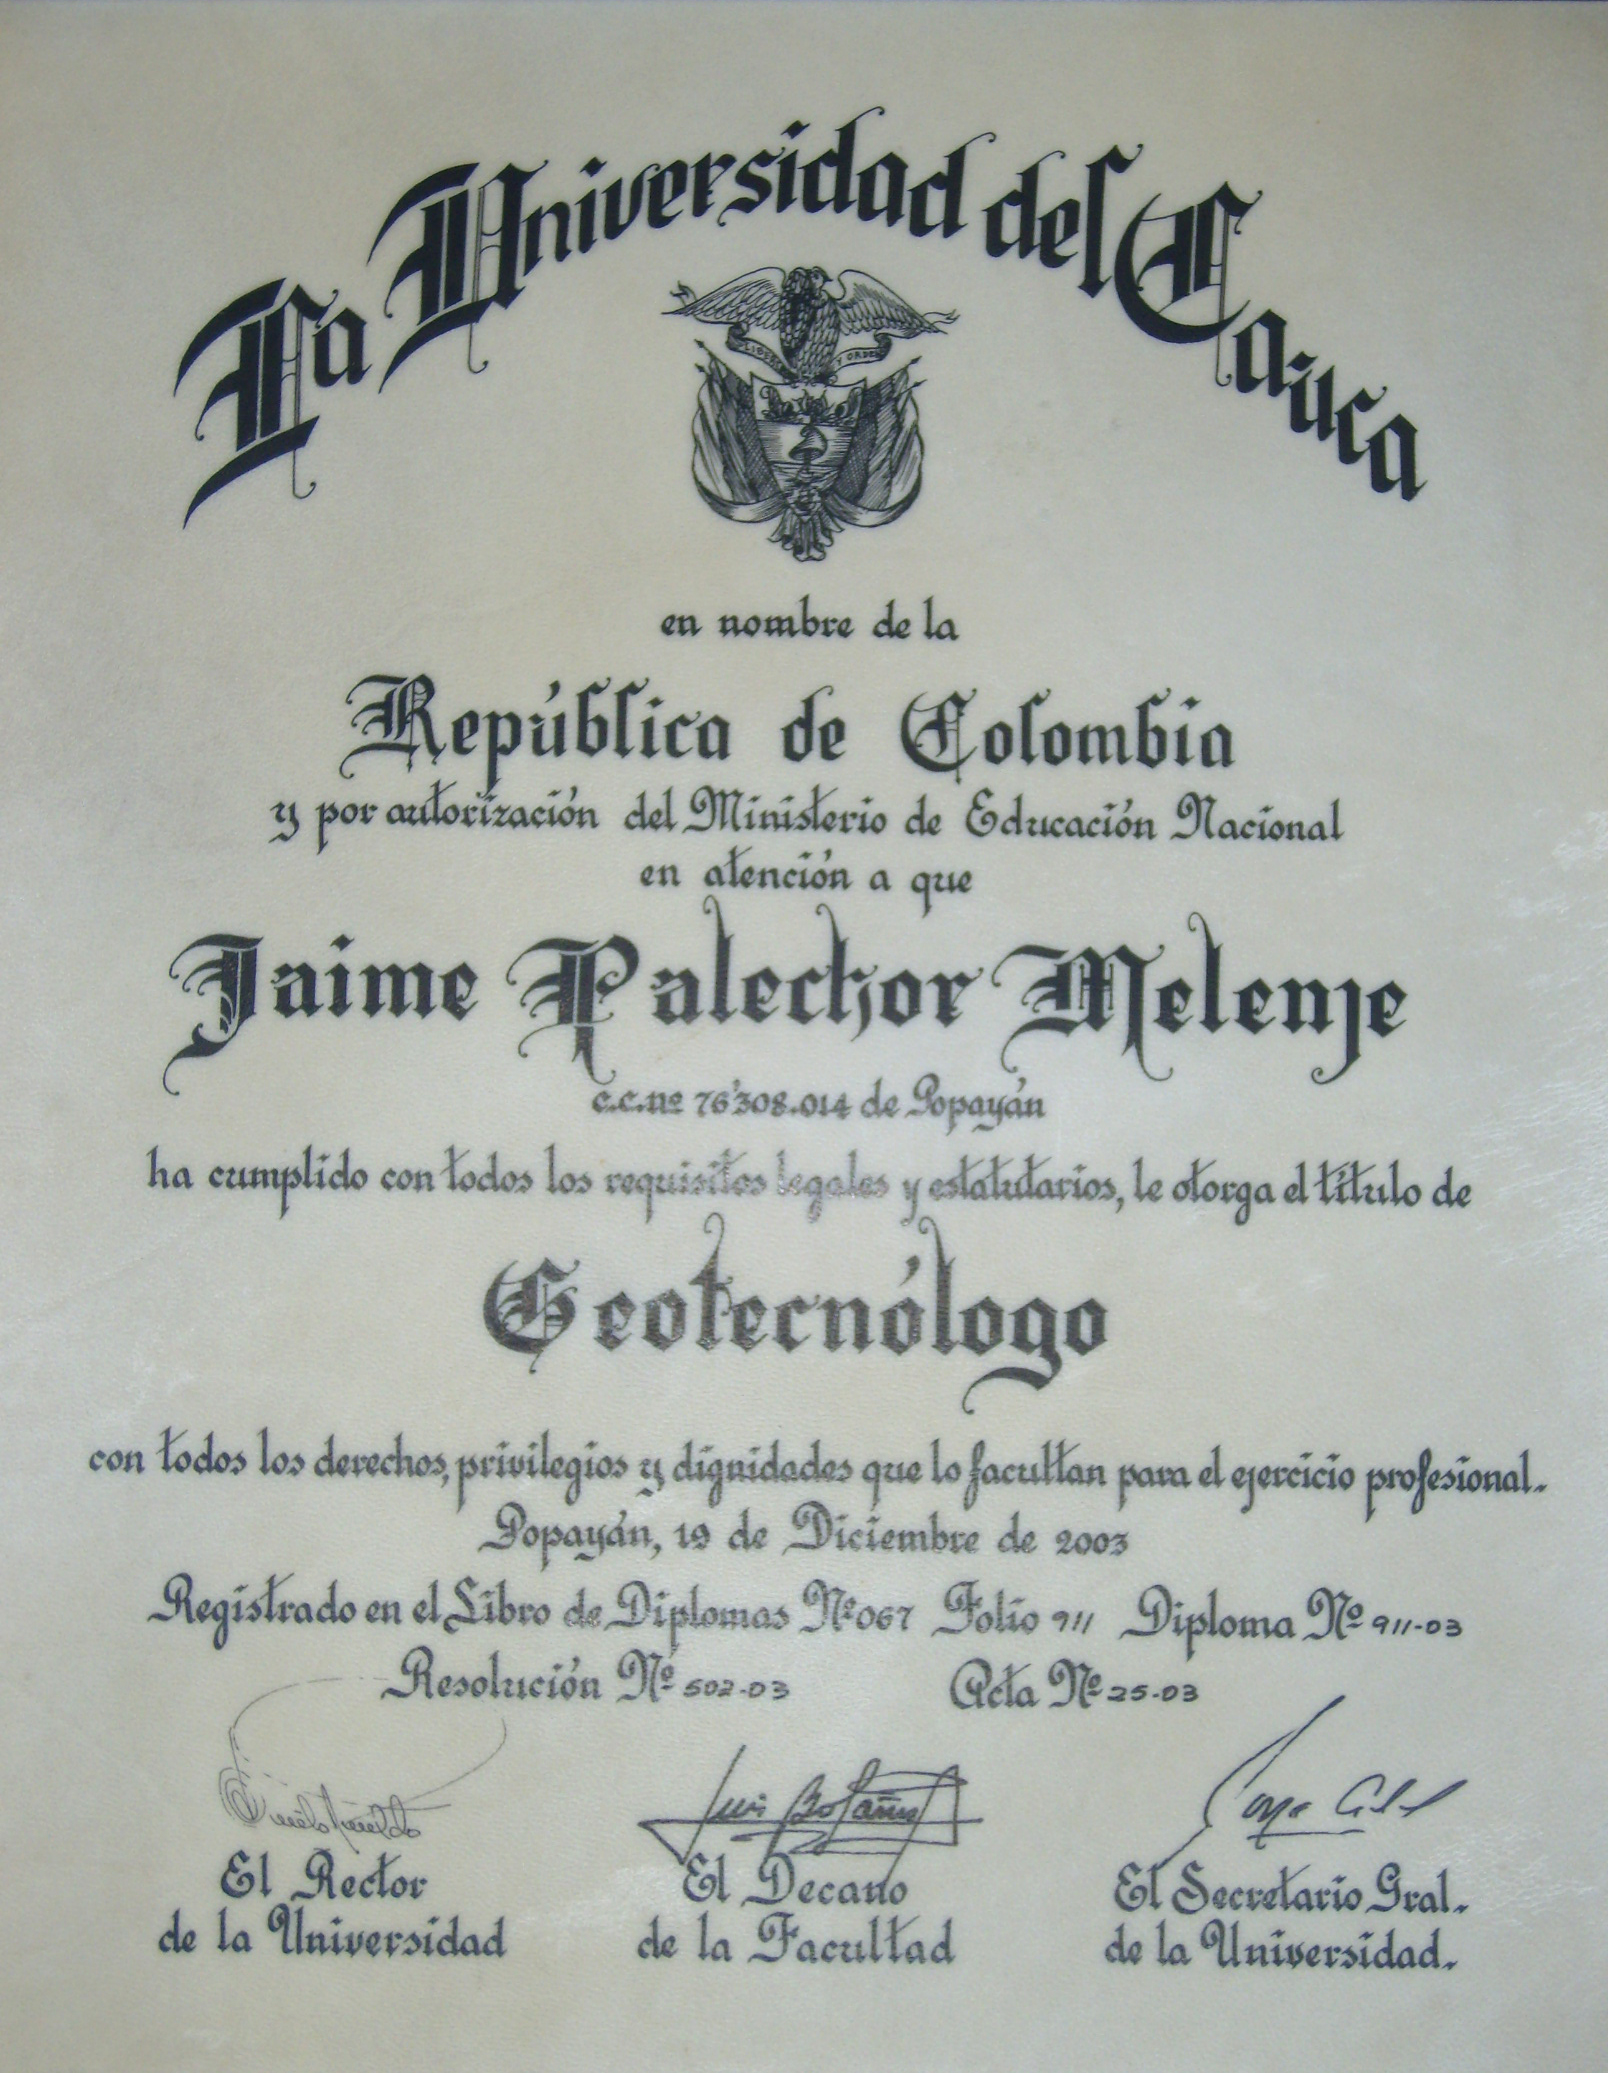 La Universidad del Cauca
LIBER Y ORDE
en nombre de la
República de Colombia
y por autorización del Ministerio de Educación Nacional
en atención a que
Jaime Palechor Melenje
c.c.nº 76'308.014 de Popayán
ha cumplido con todos los requisitos legales y estatutarios, le otorga el título de
Geotecnólogo
con todos los derechos, privilegios y dignidades que lo facultan para el ejercicio profesional.
Popayán, 19 de Diciembre de 2003
Registrado en el Libro de Diplomas Nº 067 Folio 911 Diploma Nº 911-03
Resolución Nº 502-03 Acta Nº 25-03
Luis Bolaños
El Rector El Decano El Secretario Gral.
de la Universidad de la Facultad de la Universidad.